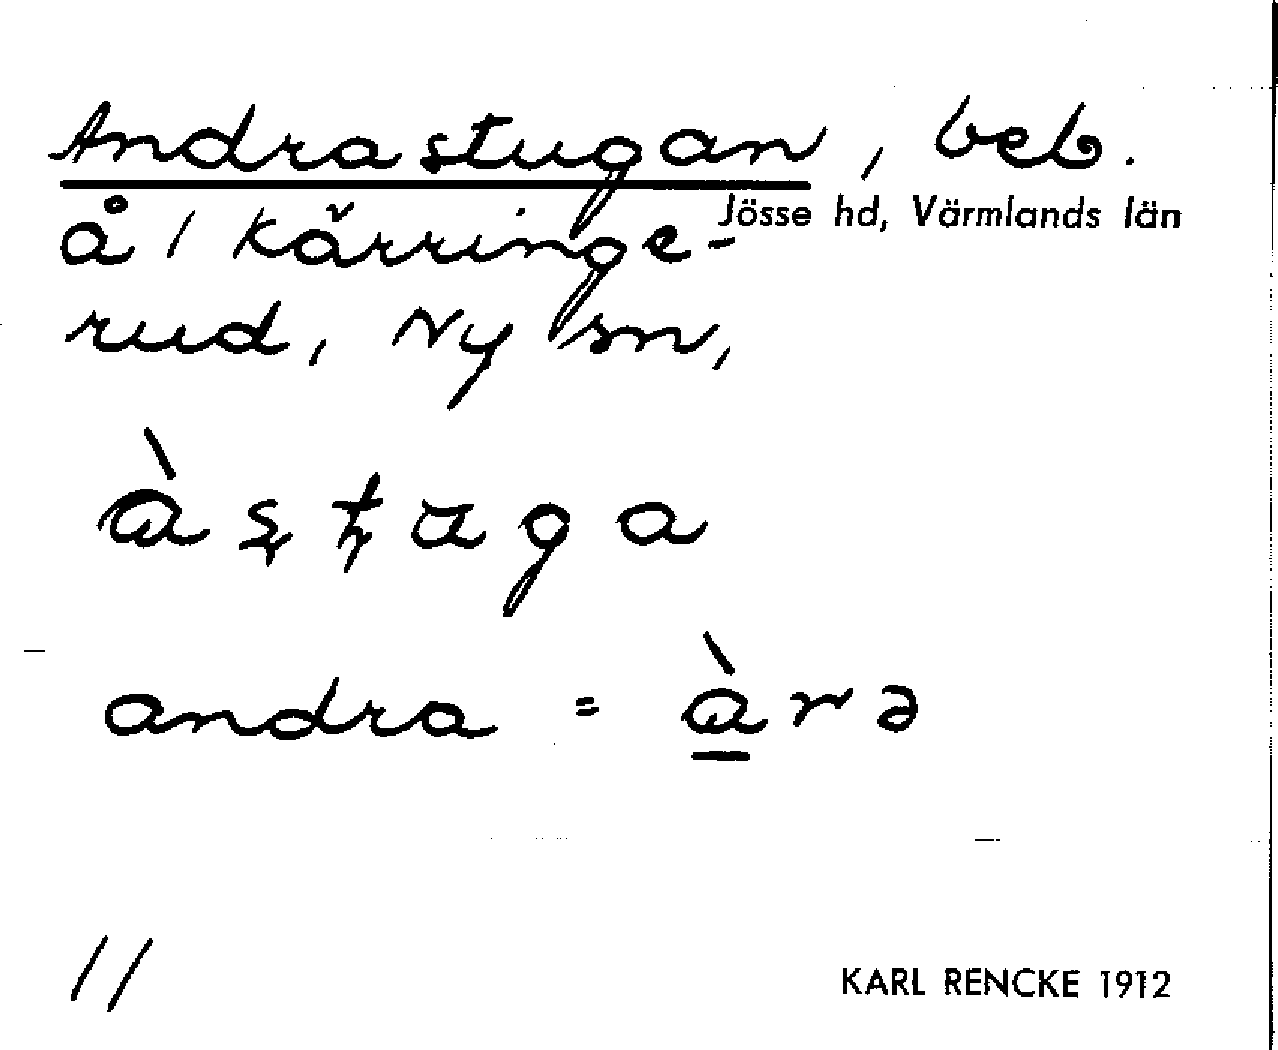 Andrastugan, beb.
Jösse hd, Värmlands län
å 1 Kärringe-
rud, Ny sn,
andra = àrə
11
KARL RENCKE 1912